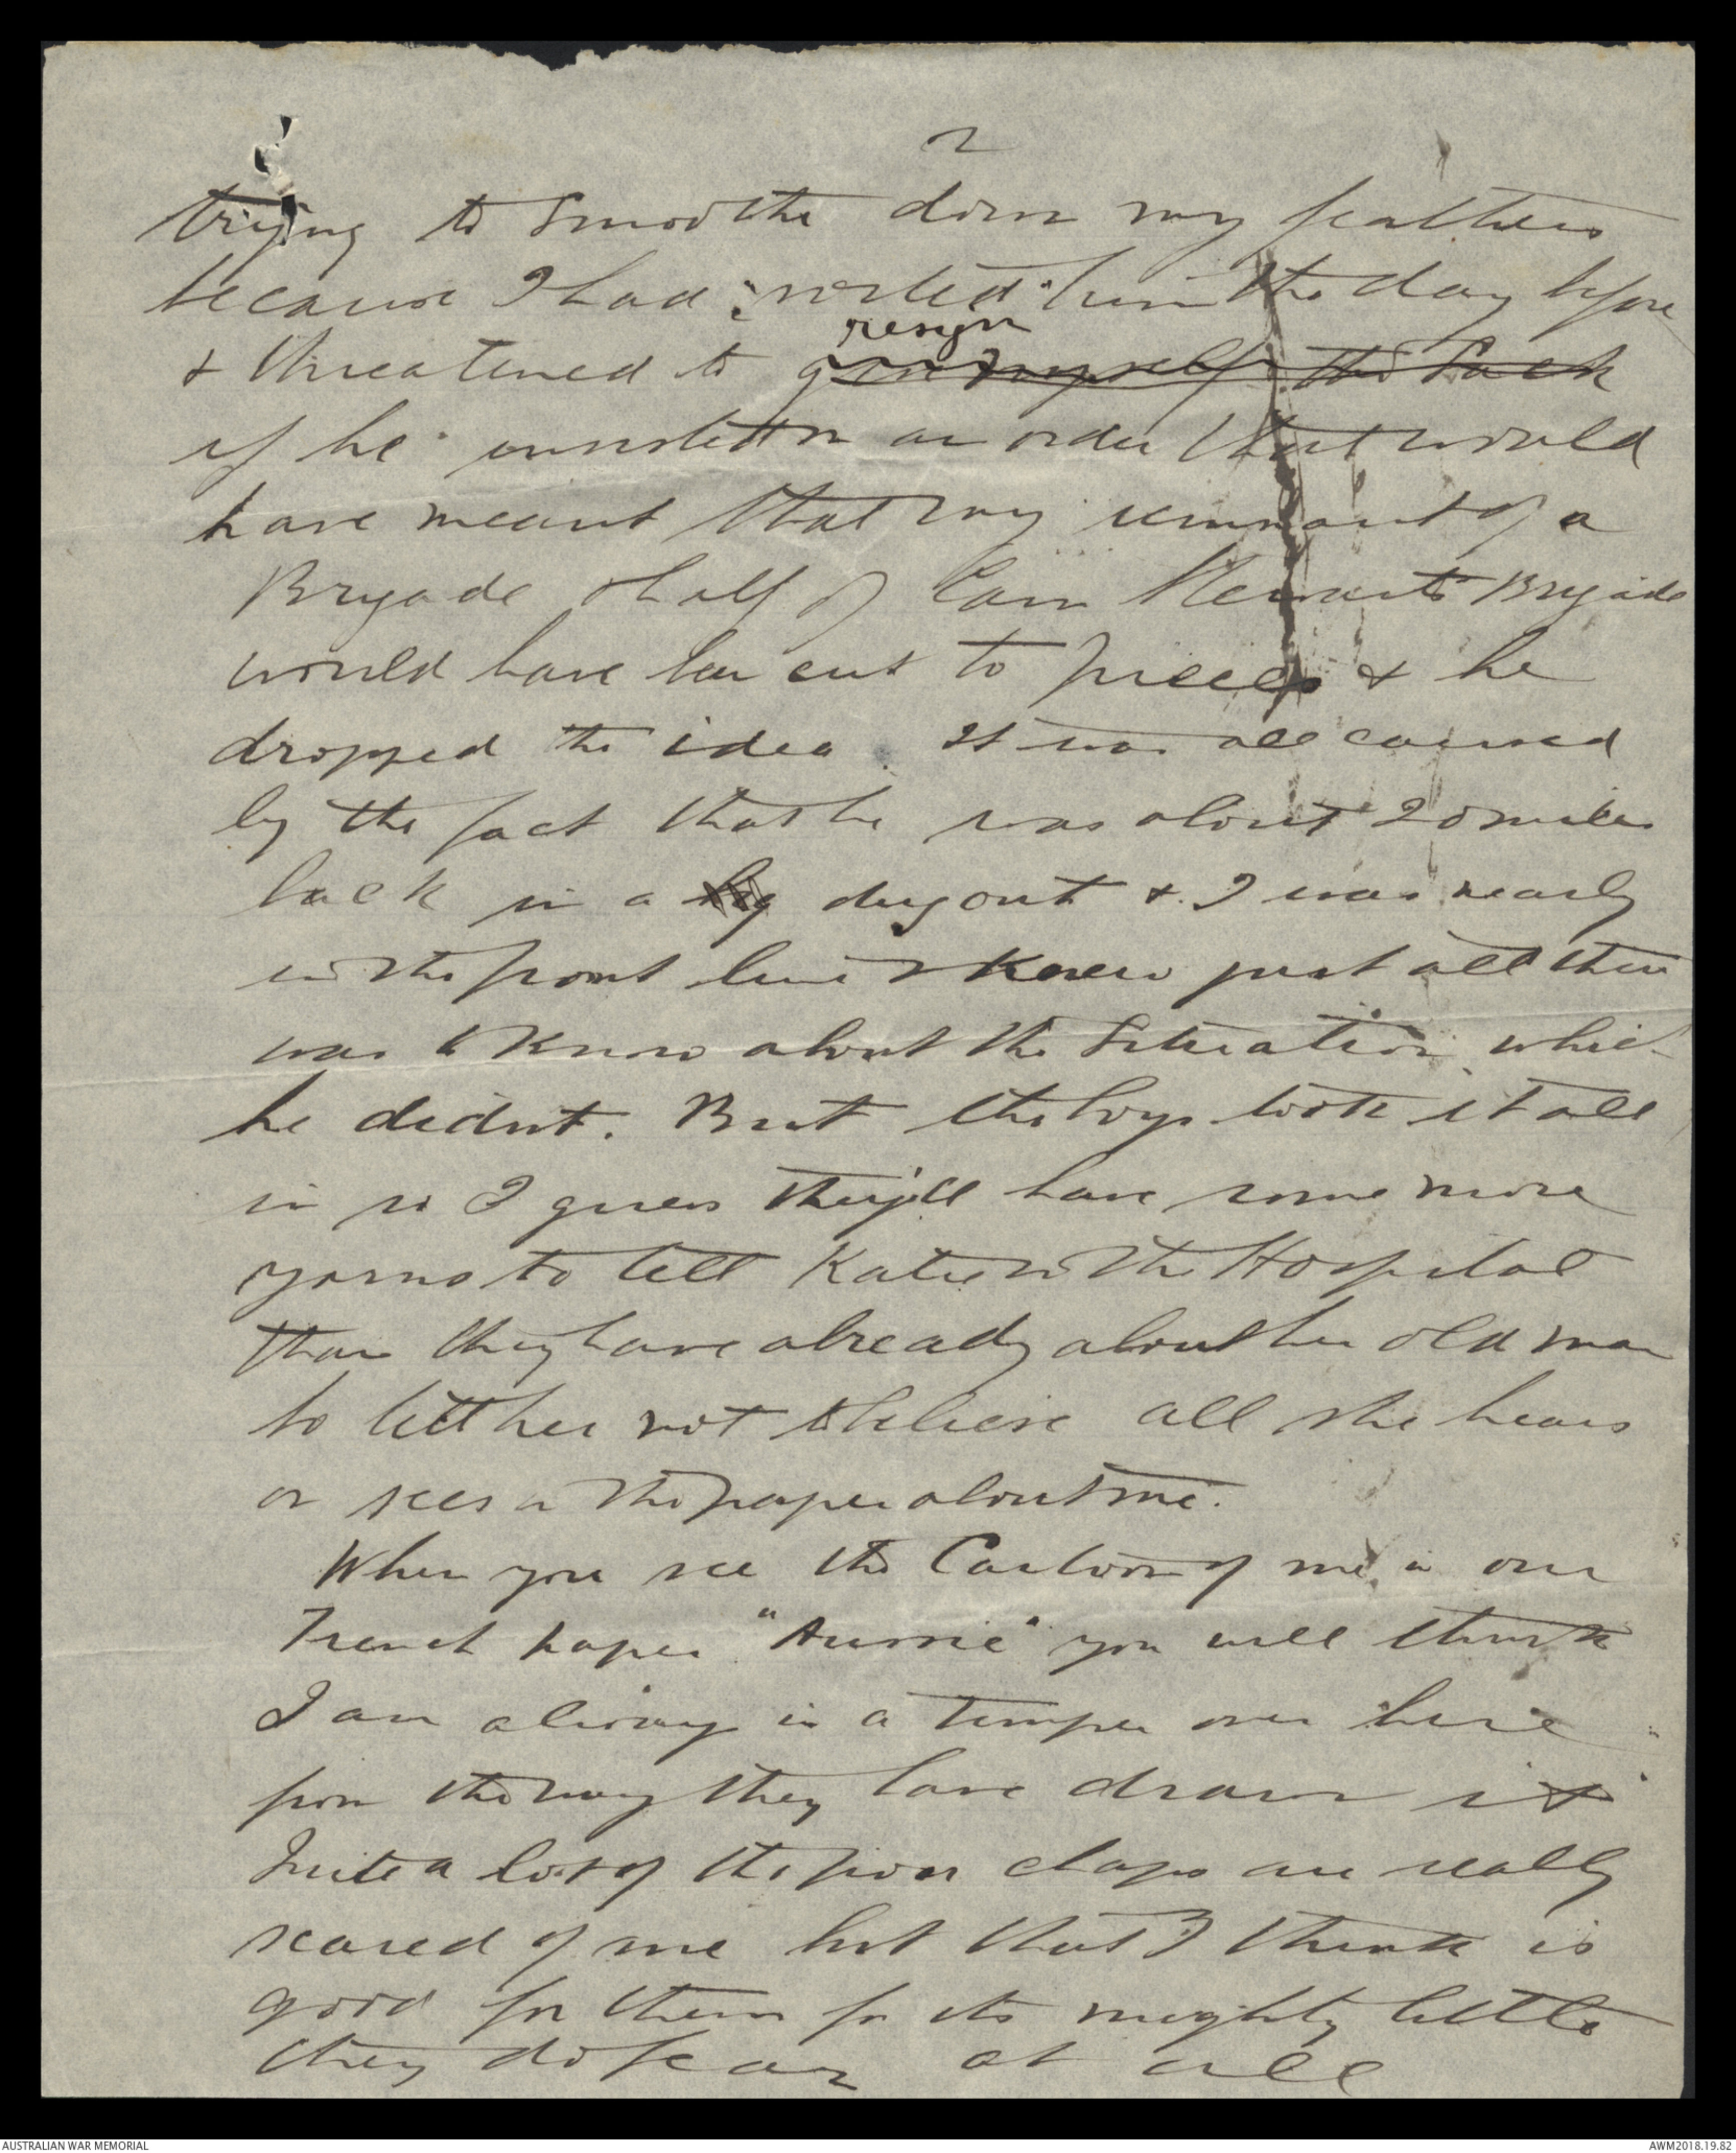 2
trying to smoothe down my feathers
because I had "roasted" him the day before
resign
& threatened to give myself the sack
if he insisted on an order that would
have meant that my remnant of a
Brigade & half of Cam Stewart's Brigade
would have been cut to pieces & he
dropped the idea. It was all caused
by the fact that he was about 20 miles
back in a big dugout & I was nearly
in the front line & knew just all there
was to know about the situation which
he didnt. But the boys took it all
in so I guess they'll have some more
yarns to tell Katie in the Hospital
than they have already about her old man
so tell her not to believe all she hears
or sees in the paper about me.
When you see the Cartoon of me in our
Trench paper "Aussie" you will think
I am always in a temper over here
from the way they have drawn it
Quite a lot of the poor chaps are really
scared of me but that I think is
good for them for its mighty little
they do fear at all
AUSTRALIAN WAR MEMORIAL
AWM2018.19.82